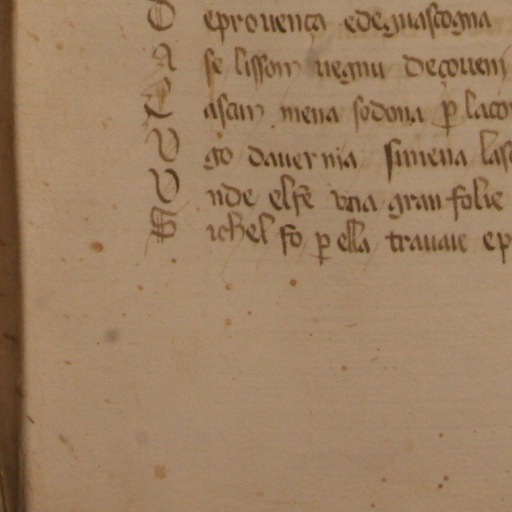 D eprouença edeguascogna
A se lisson uegnu deçouen
L ascun mena sodona p laco
V go dauernia simena las
V nde elfe vna gran folie
S ichel fo p ella trauaie ep